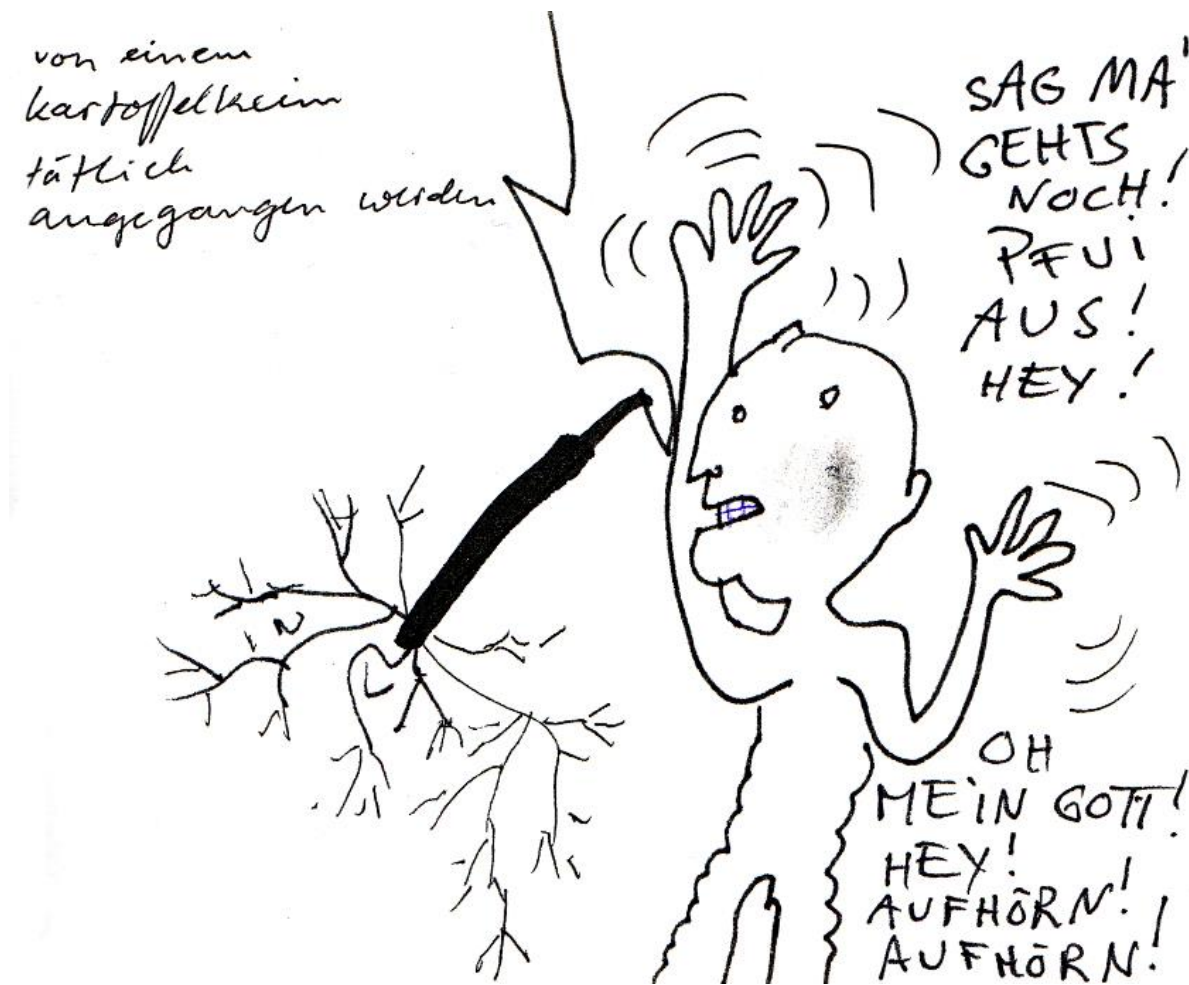 von einem
kartoffelkeim
tätlich
angegangen werden
SAG MA'
GEHTS
NOCH!
PFUI
AUS!
HEY!
OH
MEIN GOTT!
HEY!
AUFHÖRN!
AUFHÖRN!